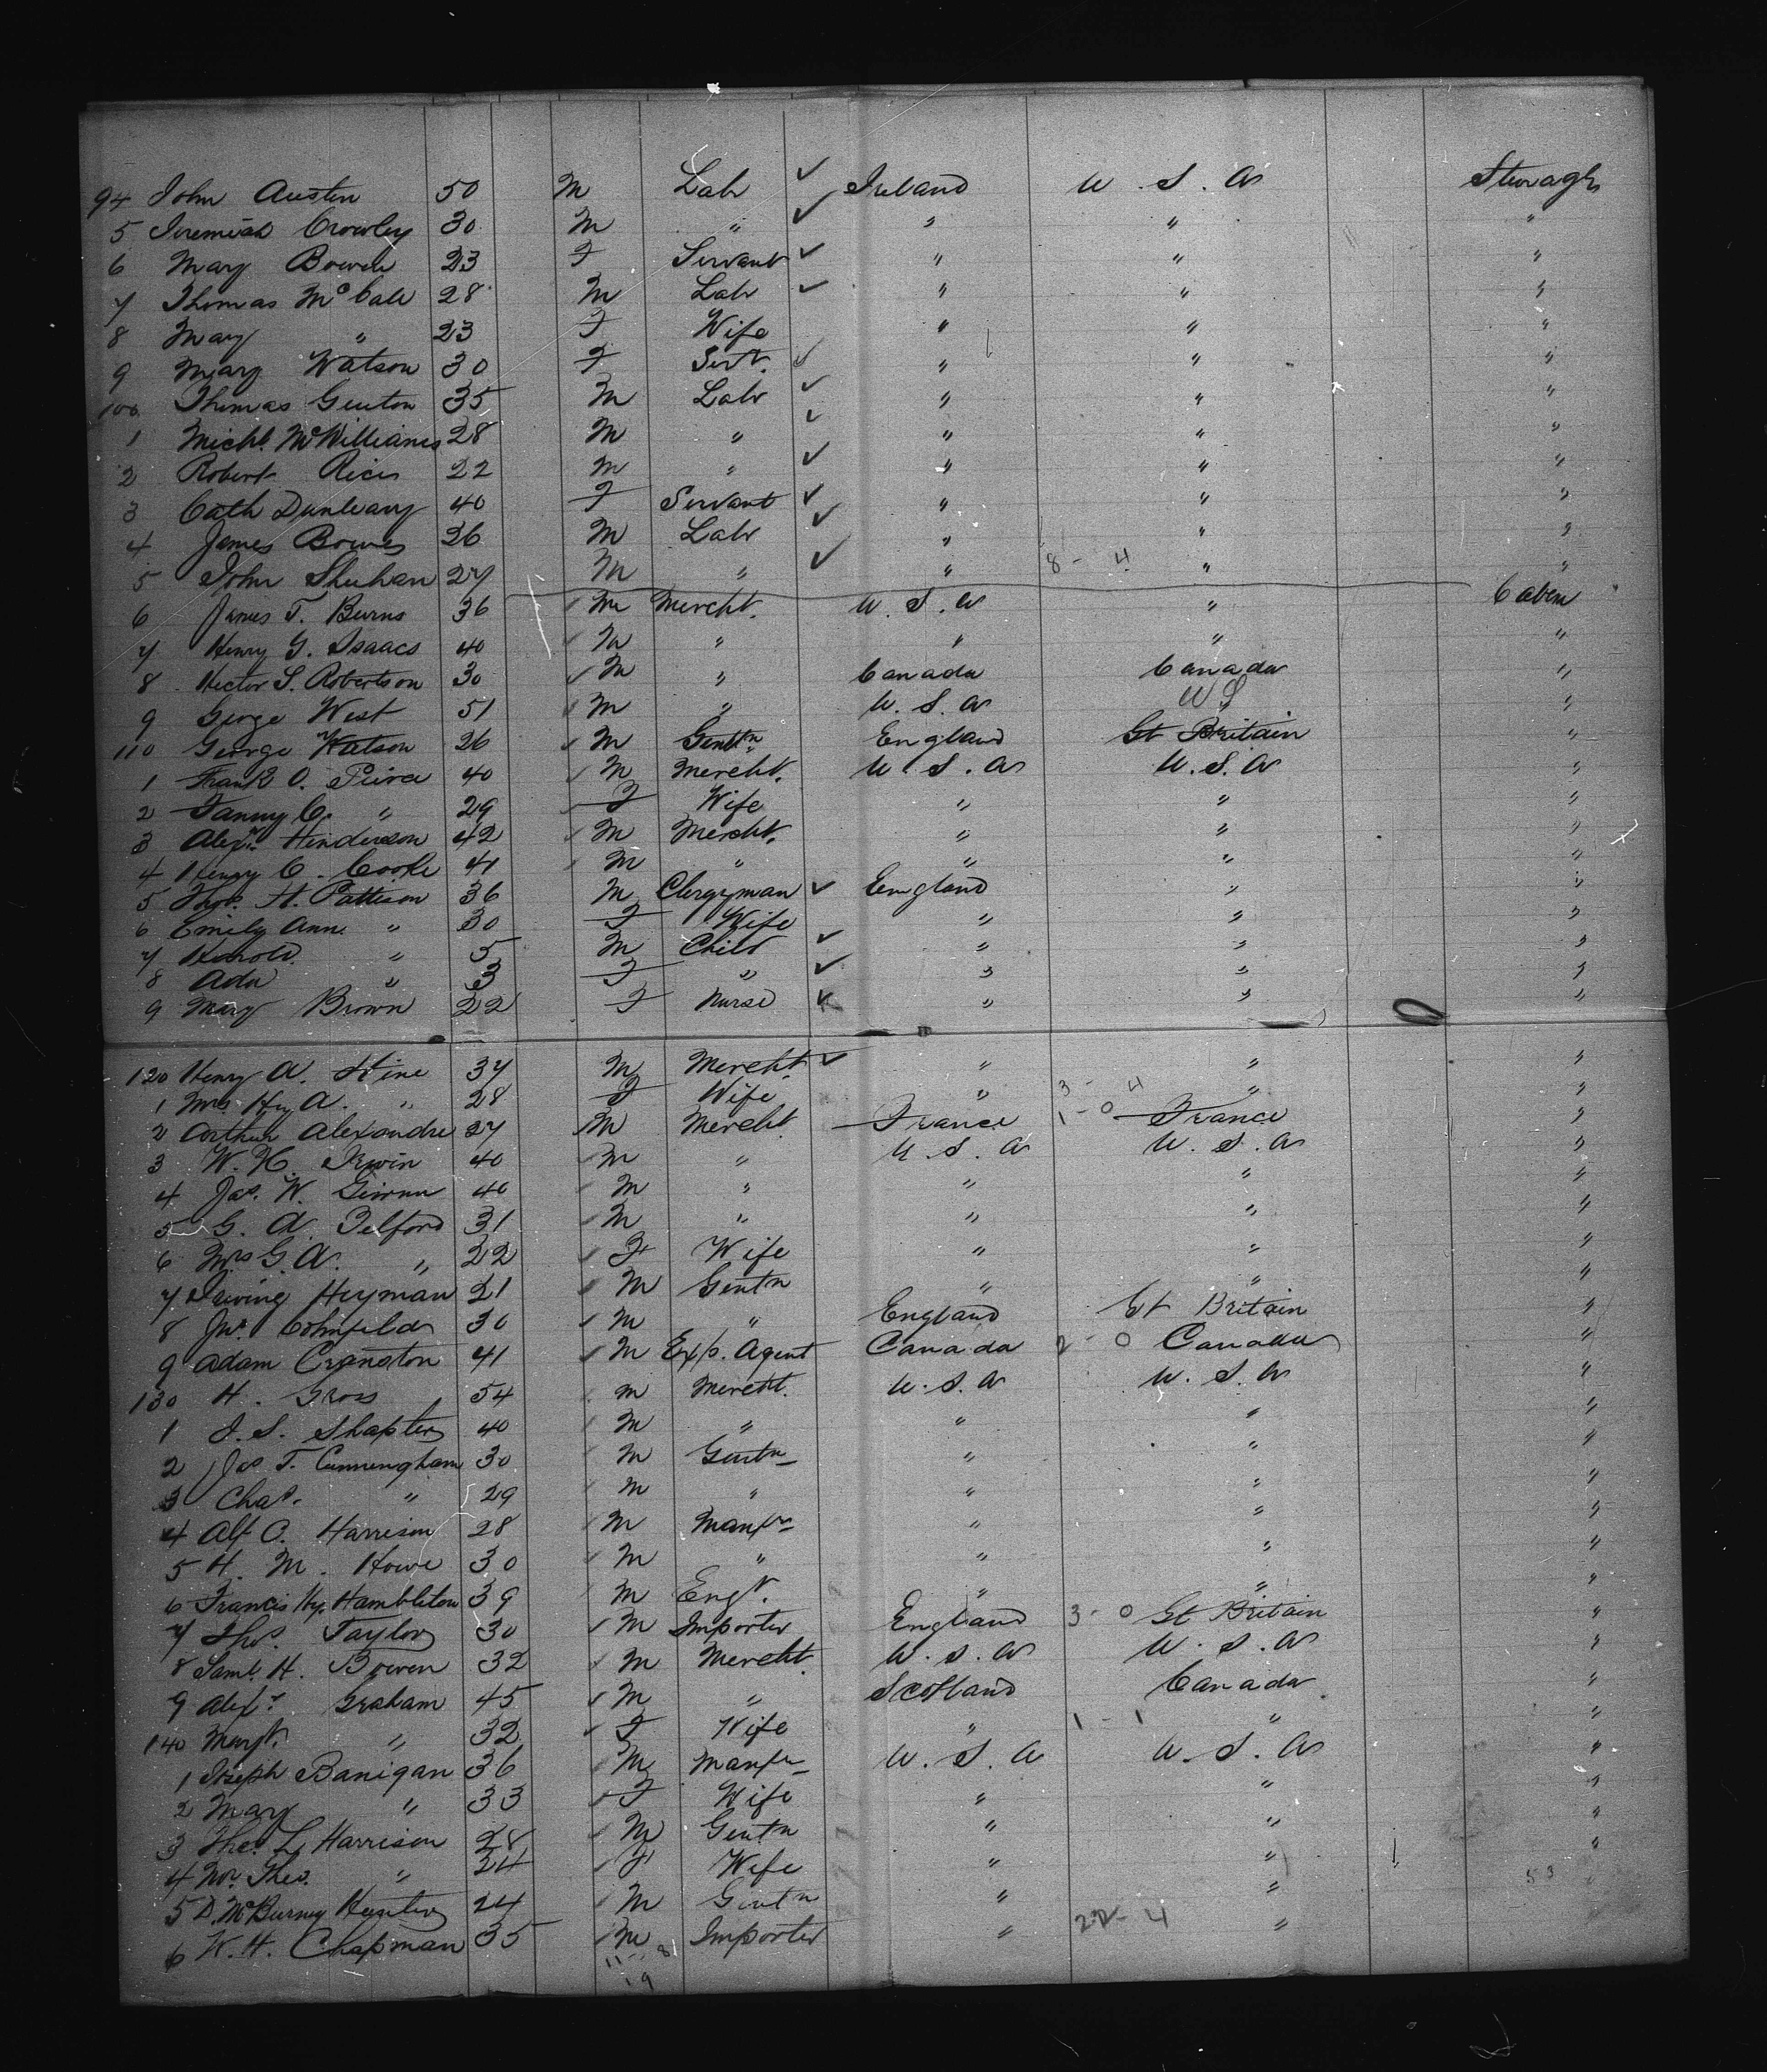 94 John Austen 50 M Labr ✓ Ireland U.S.A Steerage
5 Jeremiah Crowley 30 M " ✓ " " "
6 Mary Bowen 23 F Servant ✓ " " "
7 Thomas McCabe 28 M Labr ✓ " " "
8 Mary " 23 F Wife " " "
9 Mary Watson 30 F Sert. ✓ " " "
100 Thomas Genton 35 M Labr ✓ " " "
1 Michl. McWilliams 28 M " ✓ " " "
2 Robert Rices 22 M " ✓ " " "
3 Cath Dunleavy 40 F Servant ✓ " " "
4 James Bowes 26 M Labr ✓ " " "
5 John Shuhan 27 M " ✓ " 8 - 4 " "
6 James T. Burns 36 M Mercht. U.S.A " Caben
7 Henry G. Isaacs 40 M " " " "
8 Hector S. Robertson 30 M " Canada Canada "
9 George West 51 M " U.S.A US "
110 George Watson 26 M Gentn England Gt Britain "
1 Frank O. Peirce 40 M Mercht. U.S.A U.S.A "
2 Fanny C. " 29 F Wife " " "
3 Alexr. Henderson 42 M Mercht. " " "
4 Henry C. Cooke 41 M " " " "
5 Thos. H. Pattison 36 M Clergyman ✓ England " "
6 Emily Ann. " 30 F Wife " " "
7 Harold " 5 M Child ✓ " " "
8 Ada " 3 F " ✓ " " "
9 Mary Brown 22 F Nurse ✓ " " "
120 Henry A. Hine 37 M Mercht. ✓ " " "
1 Mrs Hy A. " 28 F Wife " 3 - 4 " "
2 Arthur Alexandre 27 M Mercht. France 1 - 0 France "
3 W. H. Irwin 40 M " U.S.A U.S.A "
4 Jas. W. 40 M " " " "
5 G. A. Telford 31 M " " " "
6 Mrs G. A. " 22 F Wife " " "
7 Irving Heyman 21 M Gentn " " "
8 Jno. Cohnfeld 30 M " England Gt Britain "
9 Adam Cranston 41 M Exp. Agent Canada 2 - 0 Canada "
130 H. Gross 54 M Mercht. U.S.A U.S.A "
1 J. S. Shapter 40 M " " " "
2 Jas T. Cunningham 30 M Gentn " " "
3 Chas. " 29 M " " " "
4 Alf O. Harrison 28 M Manfr " " "
5 H. M. Howe 30 M " " " "
6 Francis Hy. Hambleton 39 M Engr. " " "
7 Thos. Taylor 30 M Importer England 3 - 0 Gt Britain "
8 Saml. H. Bowen 32 M Mercht. U.S.A U.S.A "
9 Alexr Graham 45 M " Scotland Canada "
140 Margt. " 32 F Wife " 1 - 1 " "
1 Joseph Banigan 36 M Manfr U.S.A U.S.A "
2 Mary " 33 F Wife " " "
3 Theo. L. Harrison 28 M Gentn " " "
4 Theo. " 24 F Wife " " "
5 D. McBurney Hunter 24 M Gentn " " 53
6 W. H. Chapman 35 M Importer " 22 - 4 "
11 - 8
19